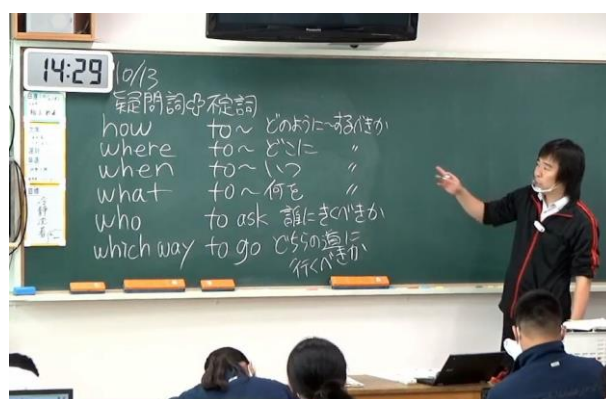 14:29
10/13
疑問詞+不定詞
how to~ どのように~するべきか
where to~ どこに 〃
when to~ いつ 〃
what to~ 何を 〃
who to ask 誰にきくべきか
which way to go どちらの道に
行くべきか
目標
冷静沈着